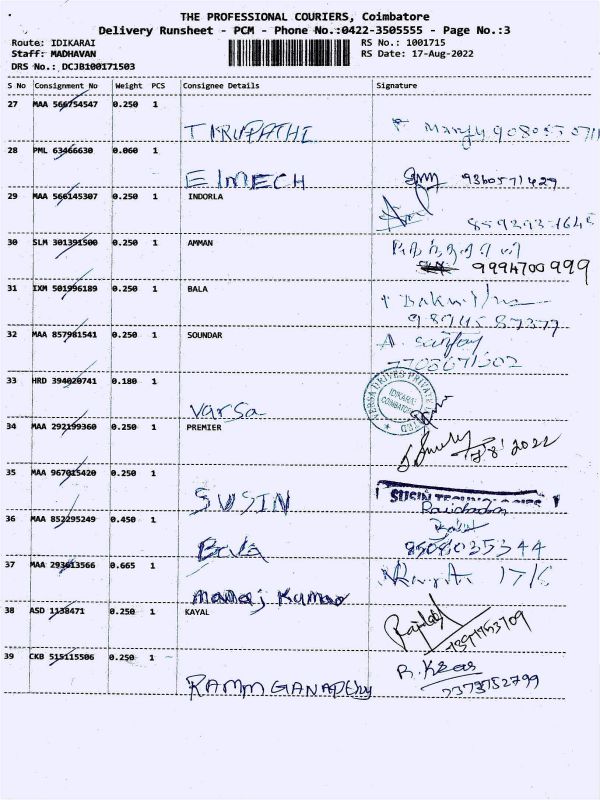 THE PROFESSIONAL COURIERS, Coimbatore
Delivery Runsheet - PCM - Phone No.:0422-3505555 - Page No.:3
Route: IDIKARAI RS No.: 1001715
Staff: MADHAVAN RS Date: 17-Aug-2022
DRS No.: DCJB100171503
S No Consignment No Weight PCS Consignee Details Signature
27 MAA 566754547 0.250 1
TIRUPATHI
28 PML 63466630 0.060 1
ELMECH 9360571429
29 MAA 566145307 0.250 1 INDORLA
30 SLM 301391500 0.250 1 AMMAN
9994700999
31 IXM 501996189 0.250 1 BALA
32 MAA 857981541 0.250 1 SOUNDAR
A. Sanjay
33 HRD 394020741 0.180 1
Varsa
IDIKARAI
COIMBATORE
34 MAA 292199360 0.250 1 PREMIER
35 MAA 967015420 0.250 1
SUSIN SUSIN TECHNOLOGIES
36 MAA 852295249 0.450 1
8508035344
37 MAA 293613566 0.665 1
Manoj Kumar
38 ASD 1138471 0.250 1 KAYAL
39 CKB 515115506 0.250 1
7373752799